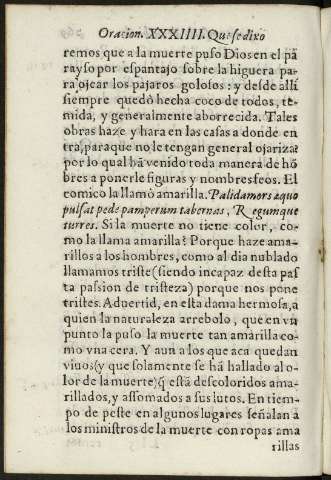 Oracion. XXXIIII. Que se dixo
remos que a la muerte puso Dios en el pa
rayso por espantajo sobre la higuera pa-
ra ojear los pajaros golosos: y desde allí
siempre quedò hecha coco de todos, te-
mida, y generalmente aborrecida. Tales
obras haze y hara en las casas a donde en
tra, para que no le tengan general ojariza:
por lo qual hà venido toda manera de hõ
bres a ponerle figuras y nombres feos. El
comico la llamò amarilla. Palida mors æquo
pulsat pede pamperum tabernas, Regumque
turres. Si la muerte no tiene color, co-
mo la llama amarilla? Porque haze ama-
rillos a los hombres, como al dia nublado
llamamos triste (siendo incapaz desta pas
ta passion de tristeza) porque nos pone
tristes. Aduertid, en esta dama hermosa, a
quien la naturaleza arrebolo, que en vn
punto la puso la muerte tan amarilla co-
mo vna cera. Y aun a los que aca quedan
viuos (y que solamente se hà hallado al o-
lor de la muerte) q̃ està descoloridos ama-
rillados, y assomados a sus lutos. En tiem-
po de peste en algunos lugares señalan a
los ministros de la muerte con ropas ama
rillas